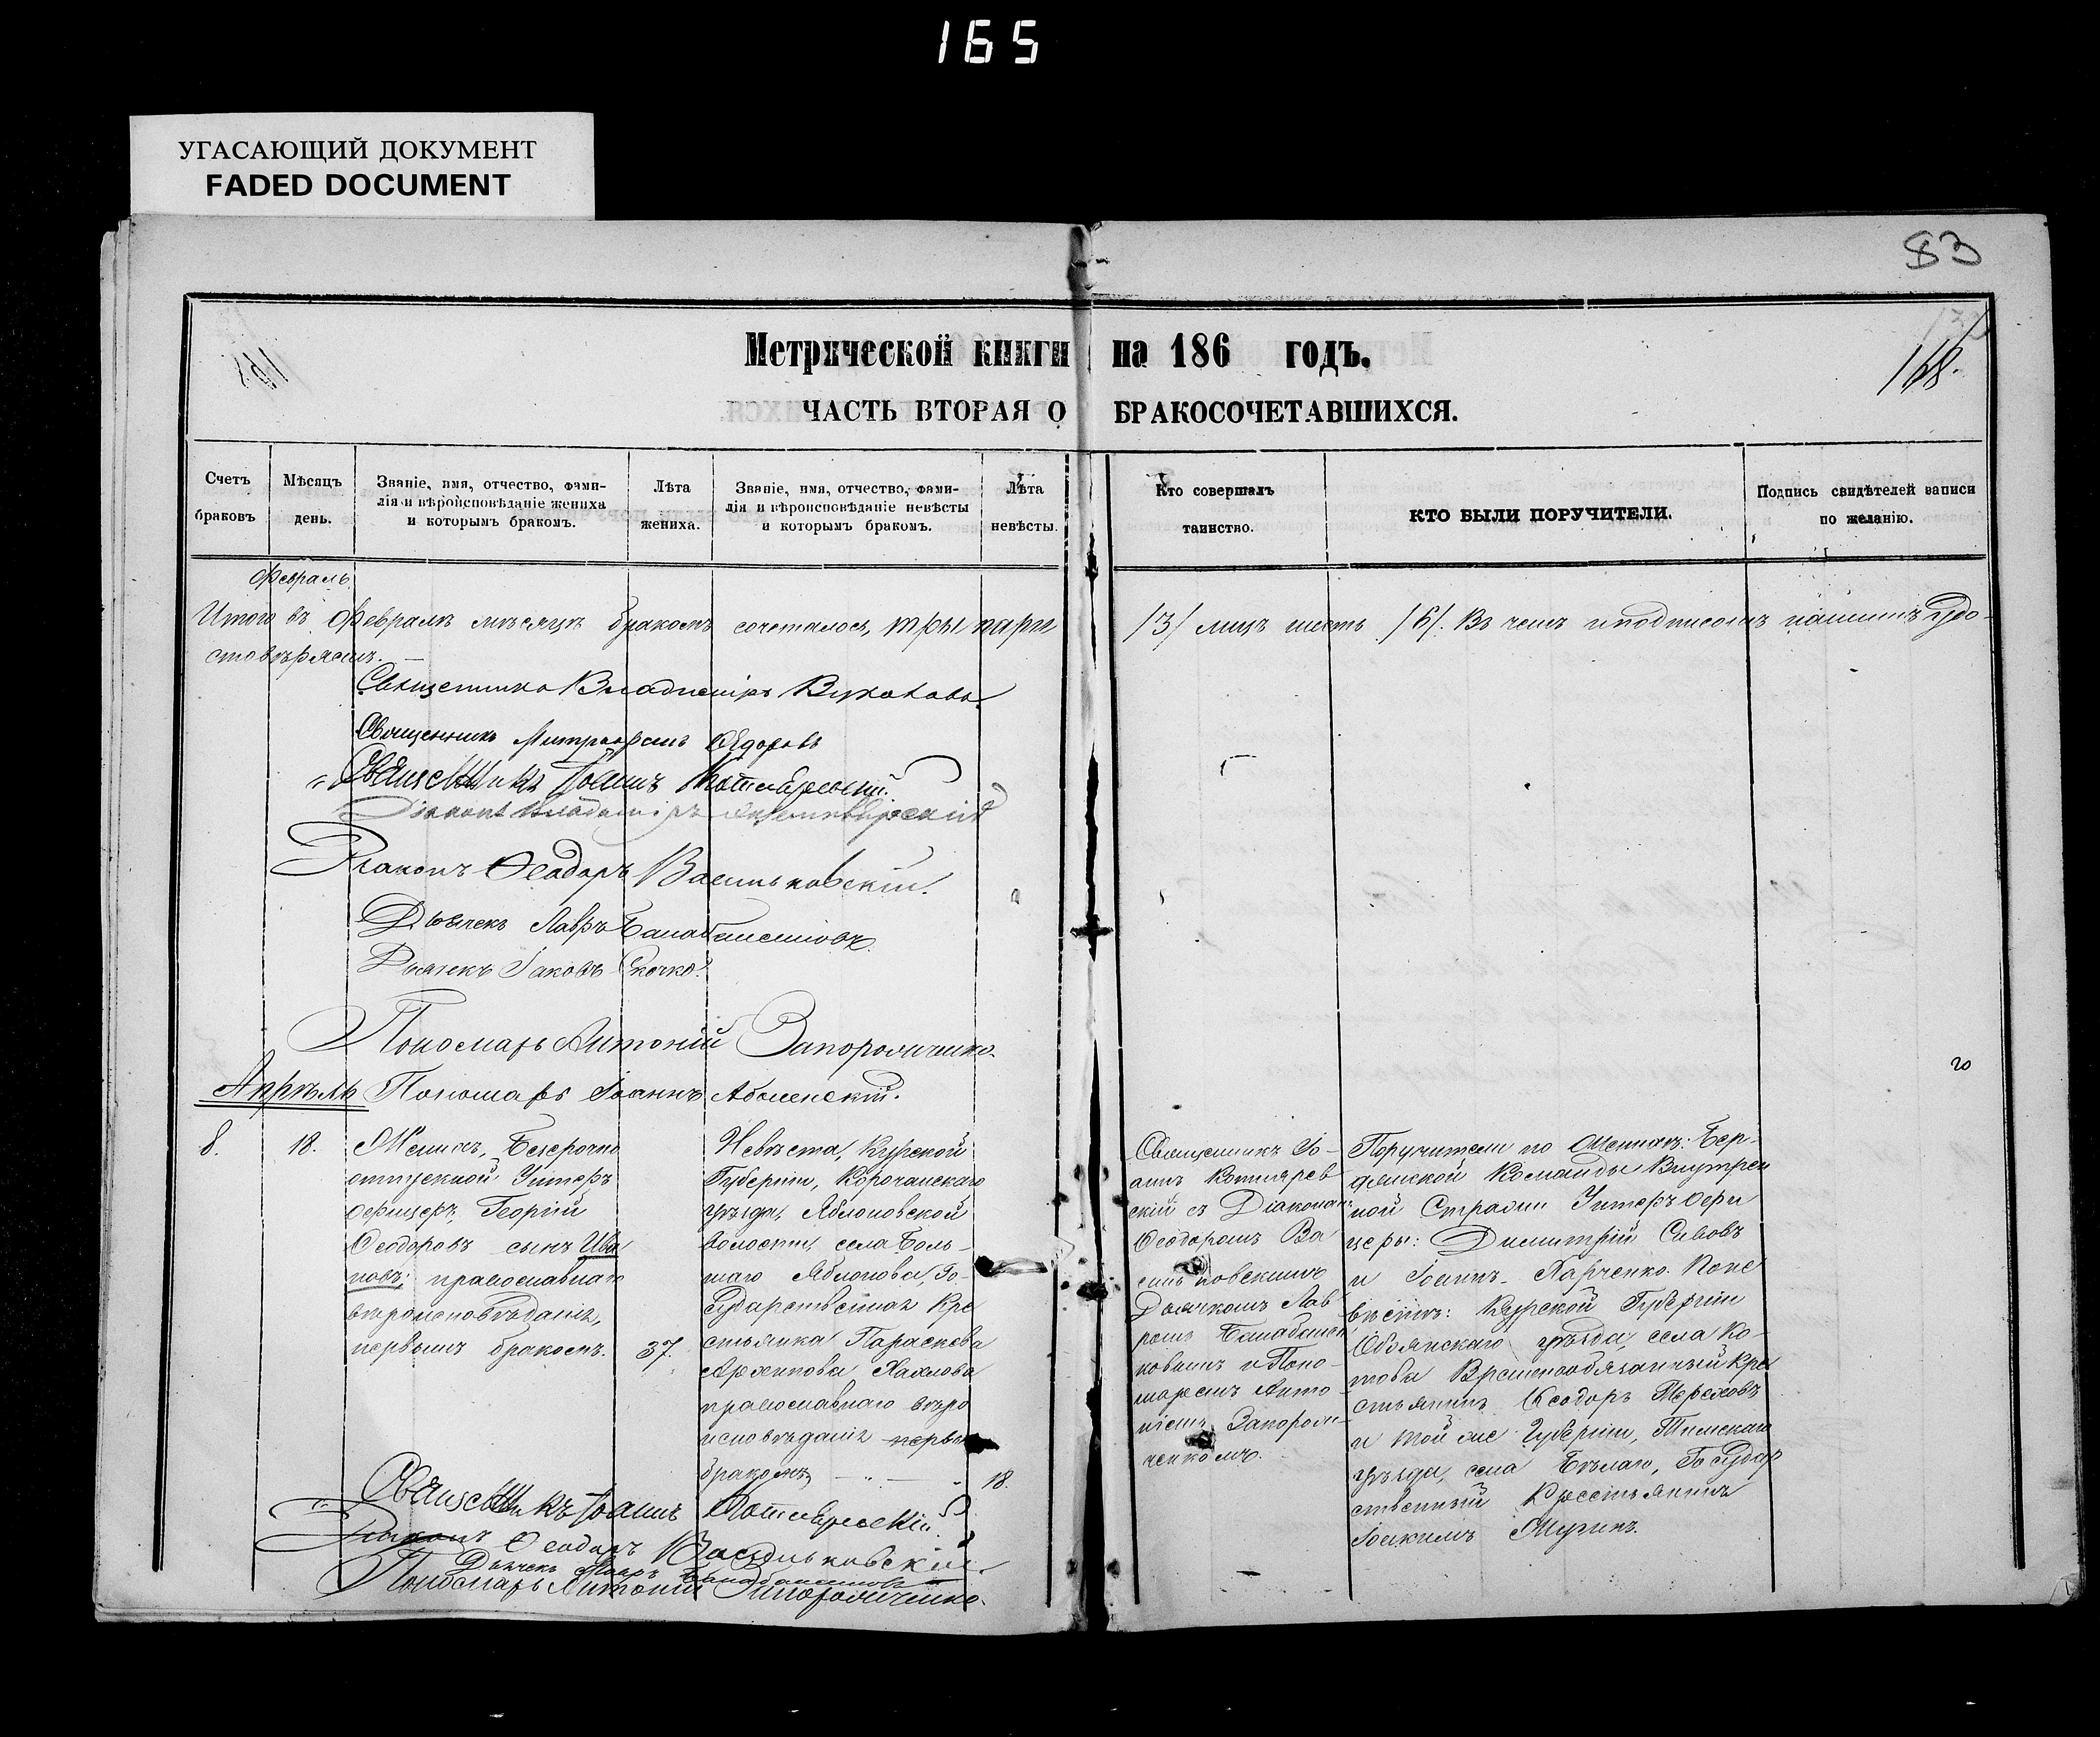 165
УГАСАЮЩИЙ ДОКУМЕНТ
FADED DOCUMENT
83
Метрической книги на 186 годъ.
168.
ЧАСТЬ ВТОРАЯ О БРАКОСОЧЕТАВШИХСЯ.
Счетъ браковъ.
Мѣсяцъ день.
Званіе, имя, отчество, фами-
лія и вѣроисповѣданіе жениха
и которымъ бракомъ.
Лѣта жениха.
Званіе, имя, отчество, фами-
лія и вѣроисповѣданіе невѣсты
и которымъ бракомъ.
Лѣта невѣсты.
Кто совершалъ таинство.
КТО БЫЛИ ПОРУЧИТЕЛИ.
Подпись свидѣтелей записи
по желанію.
Февраль
Итого въ Февралѣ мѣсяцѣ бракомъ сочеталось, три пары /3/ лицъ шесть /6/. Въ чемъ и подписомъ нашимъ удо-
стовѣряемъ.
Священникъ Владиміръ
Священникъ Митрофанъ Ѳедоровъ
Священникъ Іоаннъ Котляревскій.
Діаконъ Владиміръ
Діаконъ Ѳеодоръ Васильковскій.
Дьячекъ Лавръ
Дьячекъ Іаковъ Скочко.
Пономарь Антоній Запорожченко.
Апрѣль
Пономарь Іоаннъ Аболенскій.
20
8.
18.
Женихъ, Безсрочно
отпускной Унтеръ
офицеръ, Георгій
Ѳеодоровъ сынъ Ива
новъ; православнаго
вѣроисповѣданія,
первымъ бракомъ.
37.
Невѣста, Курской
Губерніи, Корочанскаго
уѣзда, Яблоновской
волости, села Боль-
шаго Яблонова, Го-
сударственная Кре
стьянка Параскева
Архипова
православнаго вѣро
исповѣданія первымъ
бракомъ,
18.
Священникъ Іо-
аннъ Котлярев
скій съ Діакономъ
Ѳеодоромъ Ва
сильковскимъ
Дьячкомъ Лав
ромъ
ковымъ и Поно-
маремъ Анто-
ніемъ Запорож-
ченкомъ.
Поручители по Женихѣ: Бер-
дянской Команды Внутрен
ней Стражи Унтеръ Офи
церы: Димитрій Сивовъ
и Іоаннъ Ларченко. По не
вѣстѣ: Курской Губерніи
Обоянскаго уѣзда, села Ко-
това Временнообязанный Кре
стьянинъ Ѳеодоръ Тереховъ
и той же Губерніи, Тимскаго
уѣзда, села Бѣлаго, Государ
ственный Крестьянинъ
Іоакимъ
Священникъ Іоаннъ Котляревскій.
Діаконъ Ѳеодоръ Васильковскій.
Дьячекъ Лавръ
Пономарь Антоній Запорожченко.